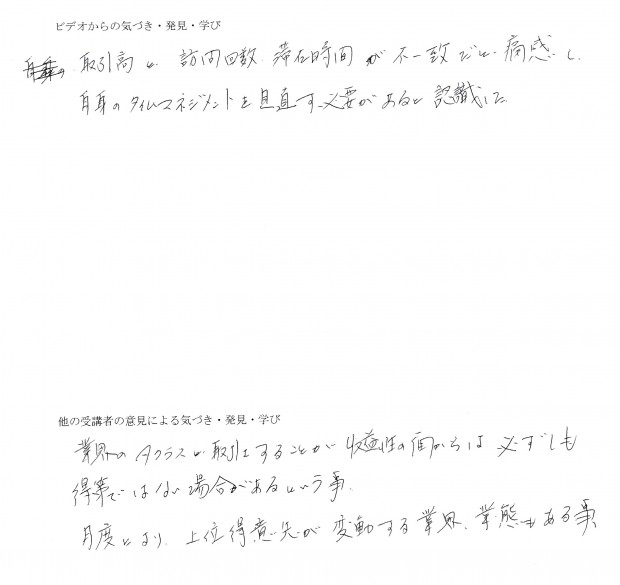 ビデオからの気づき・発見・学び
取引高と訪問回数、滞在時間が不一致だと痛感し、
自身のタイムマネジメントを見直す必要があると認識した
他の受講者の意見による気づき・発見・学び
業界のAクラスと取引することが収益性の面からは必ずしも
得策ではない場合があるという事、
月度により、上位得意先が変動する業界、業態もある事、